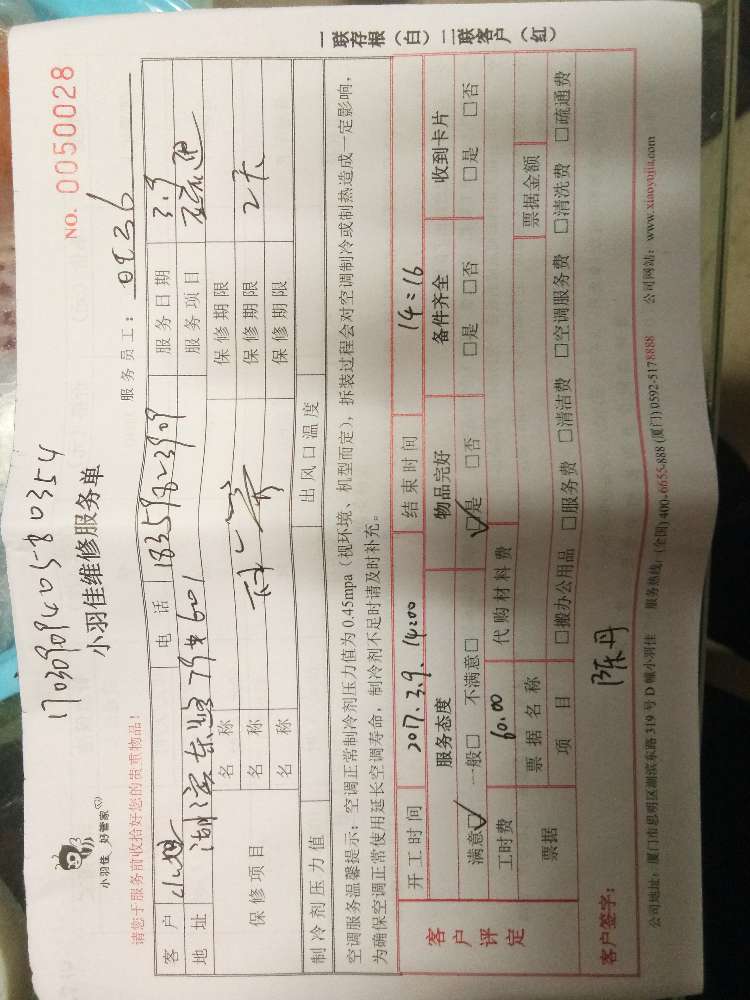 一联存根（白）二联客户（红）
NO. 0050028
1703090940580354
小羽佳 好管家
小羽佳维修服务单
请您于服务前收拾好您的贵重物品！
服务员工： 0936
客 户 电 话 18359823909 服务日期 3.9
地 址 湖滨东路79#601 服务项目
保修项目
名 称 保修期限
名 称 保修期限 2天
名 称 保修期限
制冷剂压力值 出风口温度
空调服务温馨提示：空调正常制冷剂压力值为 0.45mpa（视环境、机型而定），拆装过程会对空调制冷或制热造成一定影响，
为确保空调正常使用延长空调寿命，制冷剂不足时请及时补充。
客户评定
开工时间 2017.3.9. 14:00 结束时间 14:16
服务态度 物品完好 备件齐全 收到卡片
满意☑ 一般□ 不满意□ ☑是 □否 □是 □否 □是 □否
工时费 60.00 代购材料费
票据 票据名称 票据金额
项 目 □搬办公用品 □服务费 □清洁费 □空调服务费 □清洗费 □疏通费
客户签字： 陈丹
公司地址：厦门市思明区湖滨东路 319 号 D 幢小羽佳 服务热线：(全国) 400-6655-888 (厦门) 0592-5178888 公司网站：www.xiaoyujia.com